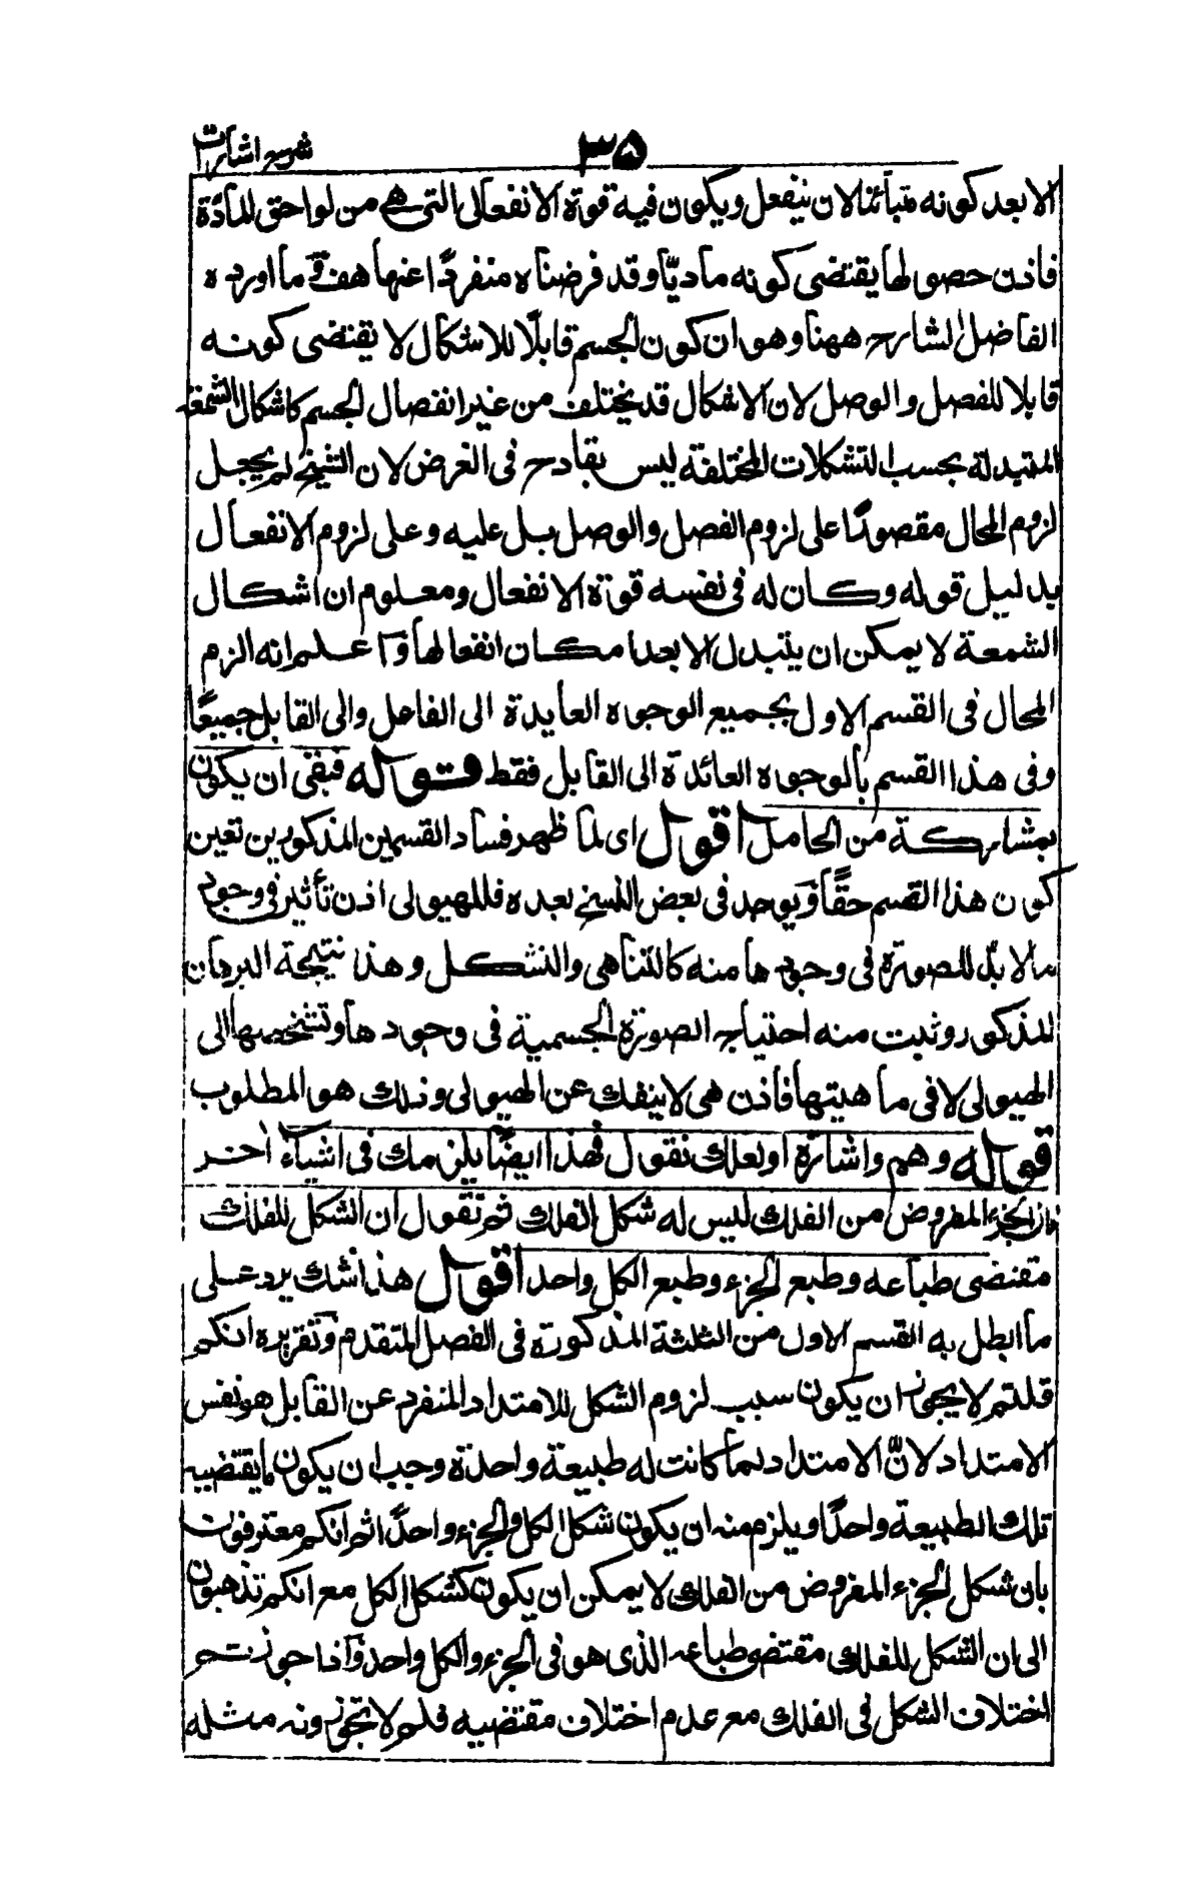 ٣٥
شرح اشارات
الا بعد كونه متبائنا لان ينفعل ويكون فيه قوة الانفعالى التى هى من لواحق المادّة
فاذن حصولها يقتضى كونه ماديّا وقد فرضناه منفردًا عنها هف وما اورده
الفاضل الشارح ههنا وهو ان كون الجسم قابلًا للاشكال لا يقتضى كونه
قابلا للفصل والوصل لان الاشكال قد يختلف من غير انفصال الجسم كاشكال الشمعة
المتبدلة بحسب التشكلات المختلفة ليس بقادح فى الغرض لان الشيخ لم يجعل
لزوم المحال مقصودًا على لزوم الفصل والوصل بل عليه وعلى لزوم الانفعال
بدليل قوله وكان له فى نفسه قوة الانفعال ومعلوم ان اشكال
الشمعة لا يمكن ان يتبدل الا بعد امكان انفعالها وٓا علم انه الزم
المحال فى القسم الاول بجميع الوجوه العايدة الى الفاعل والى القابل جميعًا
وفى هذا القسم بالوجوه العائدة الى القابل فقط قوله فبقى ان يكون
بمشاركة من الحامل اقول اى لما ظهر فساد القسمين المذكورين تعين
كون هذا القسم حقًا ويوجد فى بعض النسخ بعده فللهيولى اذن تأثير فى وجود
مالابدّ للصورة فى وجودها منه كالتناهى والتشكل وهذا نتيجة البرهان
المذكور وثبت منه احتياج الصورة الجسمية فى وجودها وتشخصها الى
الهيولى لا فى ماهيتها فاذن هى لا ينفك عن الهيولى وذلك هو المطلوب
قوله وهم واشارة اولعلك نقول فهذا ايضًا يلزمك فى اشياء اخر
فان الجزء المفروض من الفلك ليس له شكل الفلك ثم تقول ان الشكل للفلك
مقتضى طباعه وطبع الجزء وطبع الكل واحد اقول هذا شك يرد على
ما ابطل به القسم الاول من الثلثة المذكورة فى الفصل المتقدم وتقريره انكم
قلتم لا يجوز ان يكون سبب لزوم الشكل للامتداد المنفرد عن القابل هو نفس
الامتداد لانّ الامتداد لما كانت له طبيعة واحدة وجب ان يكون ما يقتضيه
تلك الطبيعة واحدًا ويلزم منه ان يكون شكل الكل والجزء واحدًا ثم انكم معترفون
بان شكل الجزء المفروض من الفلك لا يمكن ان يكون كشكل الكل مع انكم تذهبون
الى ان الشكل للفلك مقتضى طباعه الذى هو فى الجزء والكل واحد واذا جوزتم
اختلاف الشكل فى الفلك مع عدم اختلاف مقتضيه فلم لا تجوزونه مثله